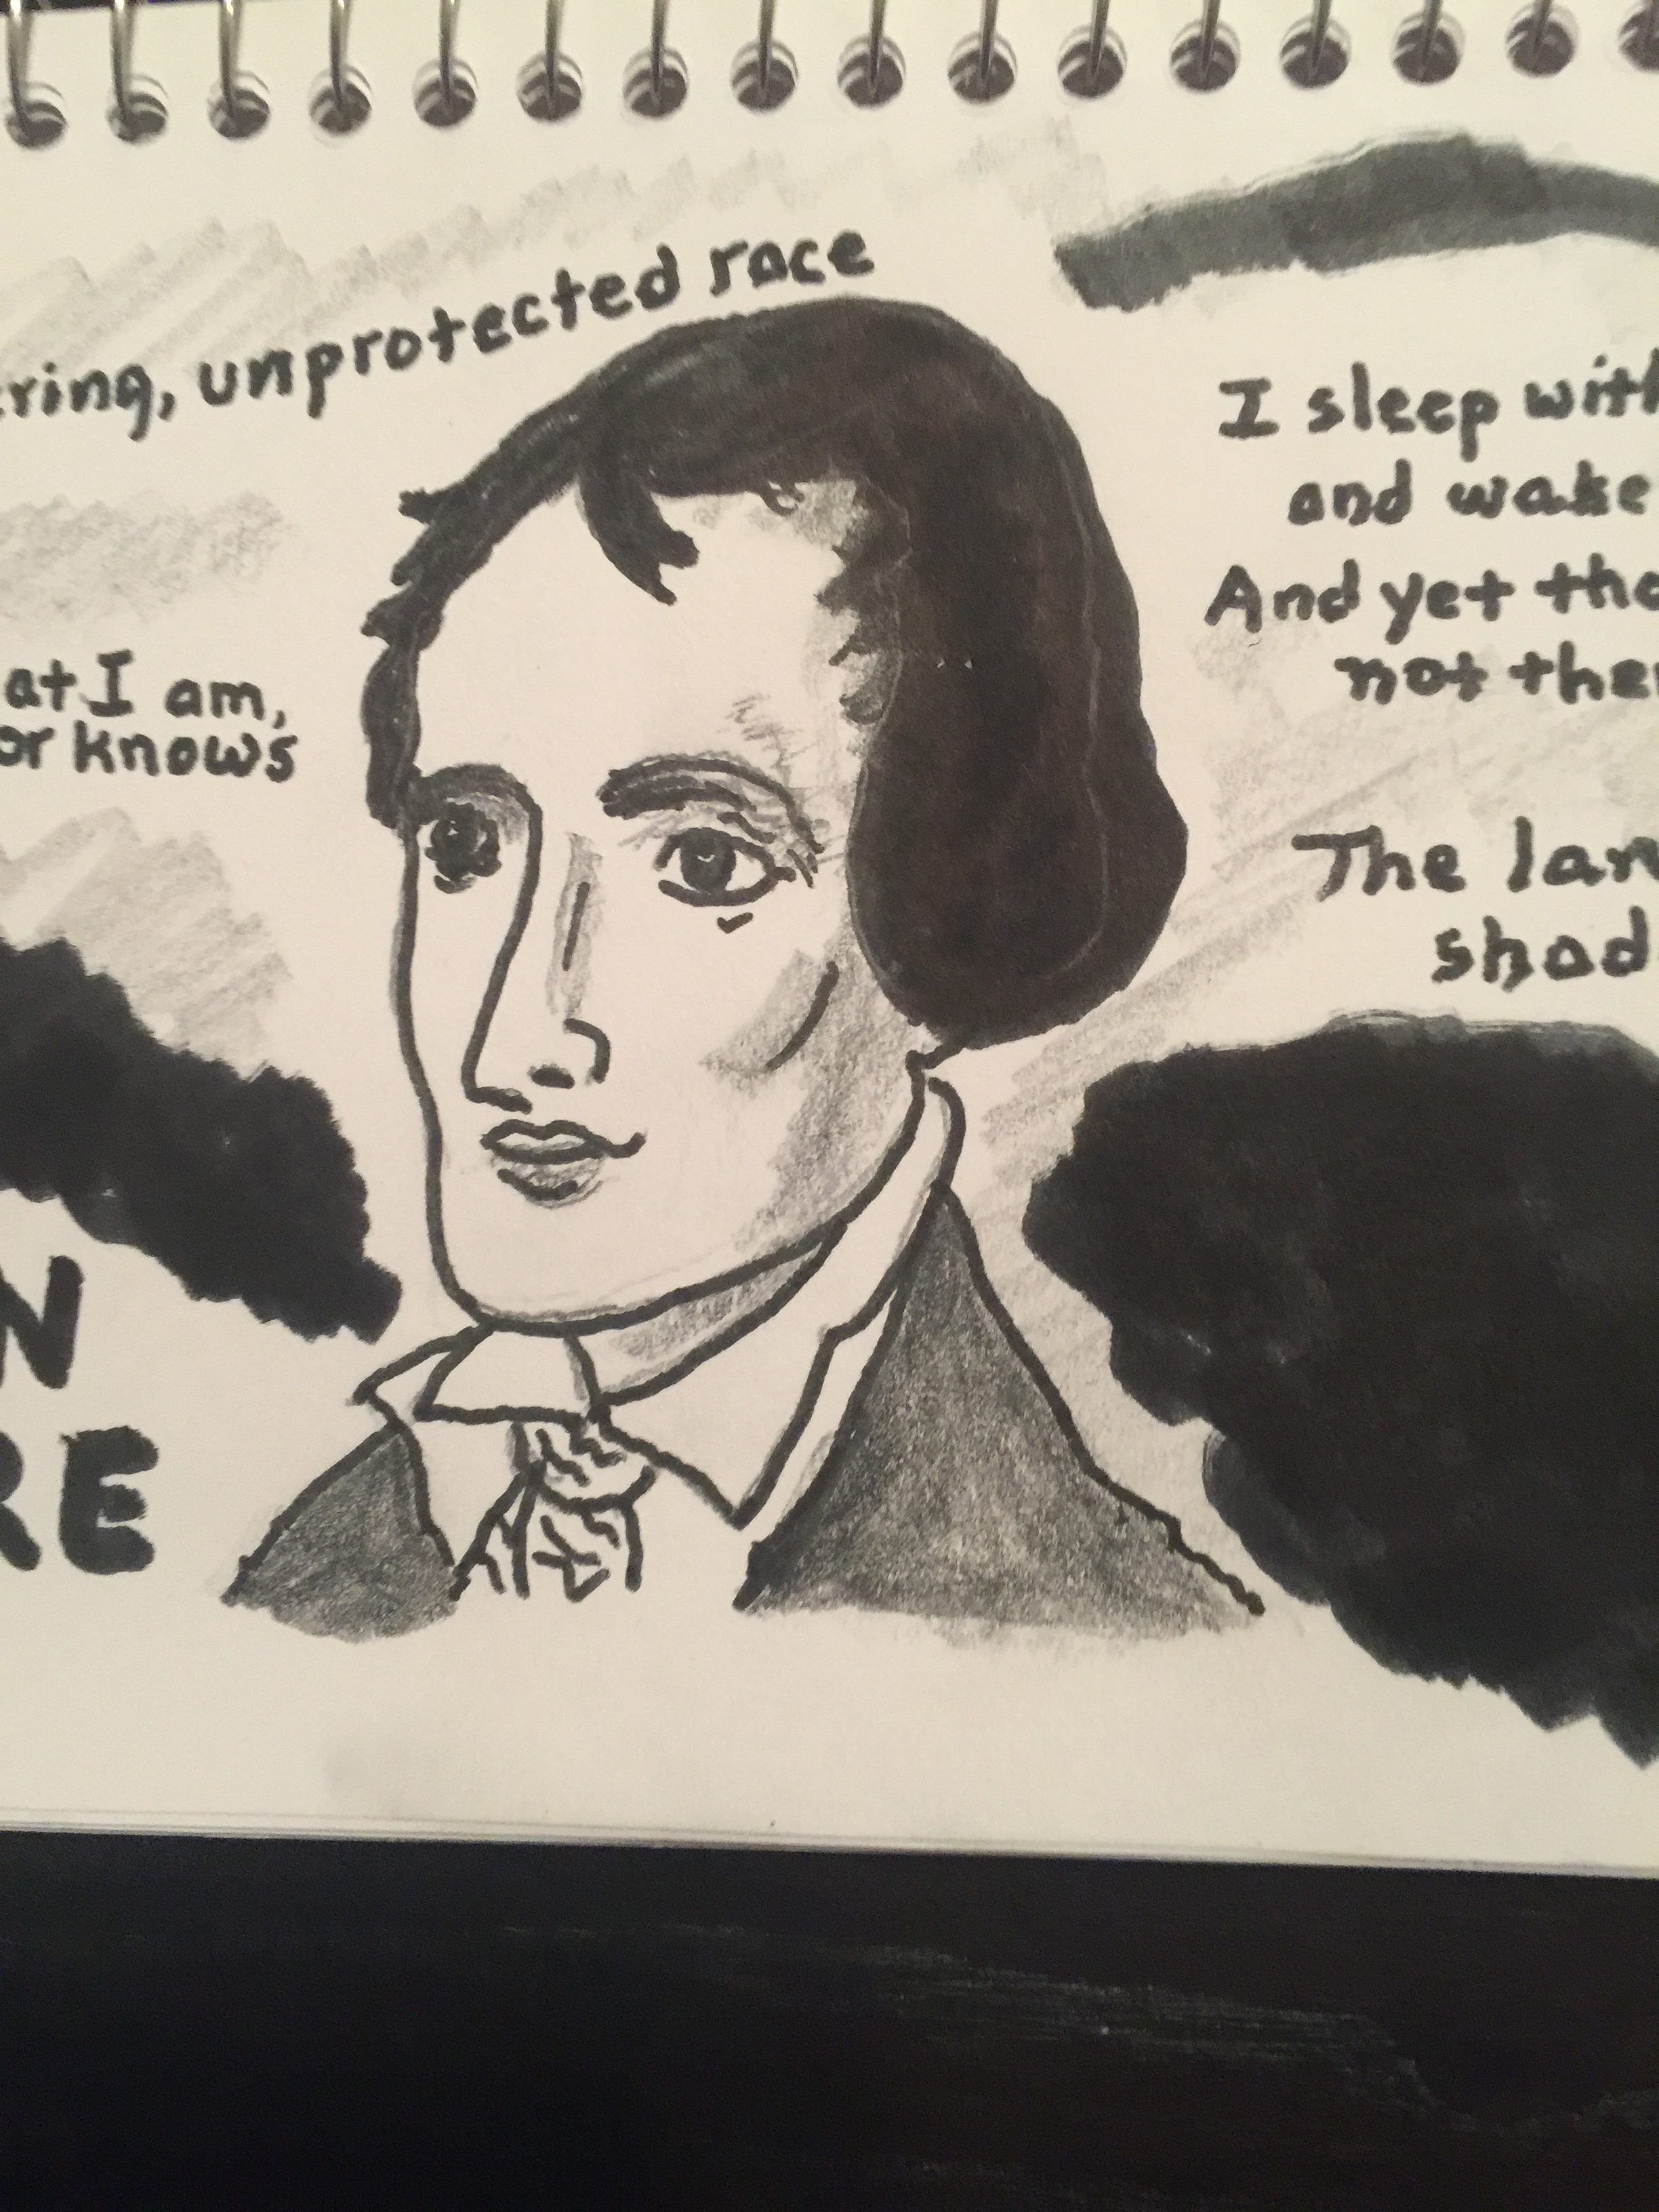 ring, unprotected race
at I am,
or knows
N
RE
I sleep with
and wake
And yet tho
not the
The lan
shad